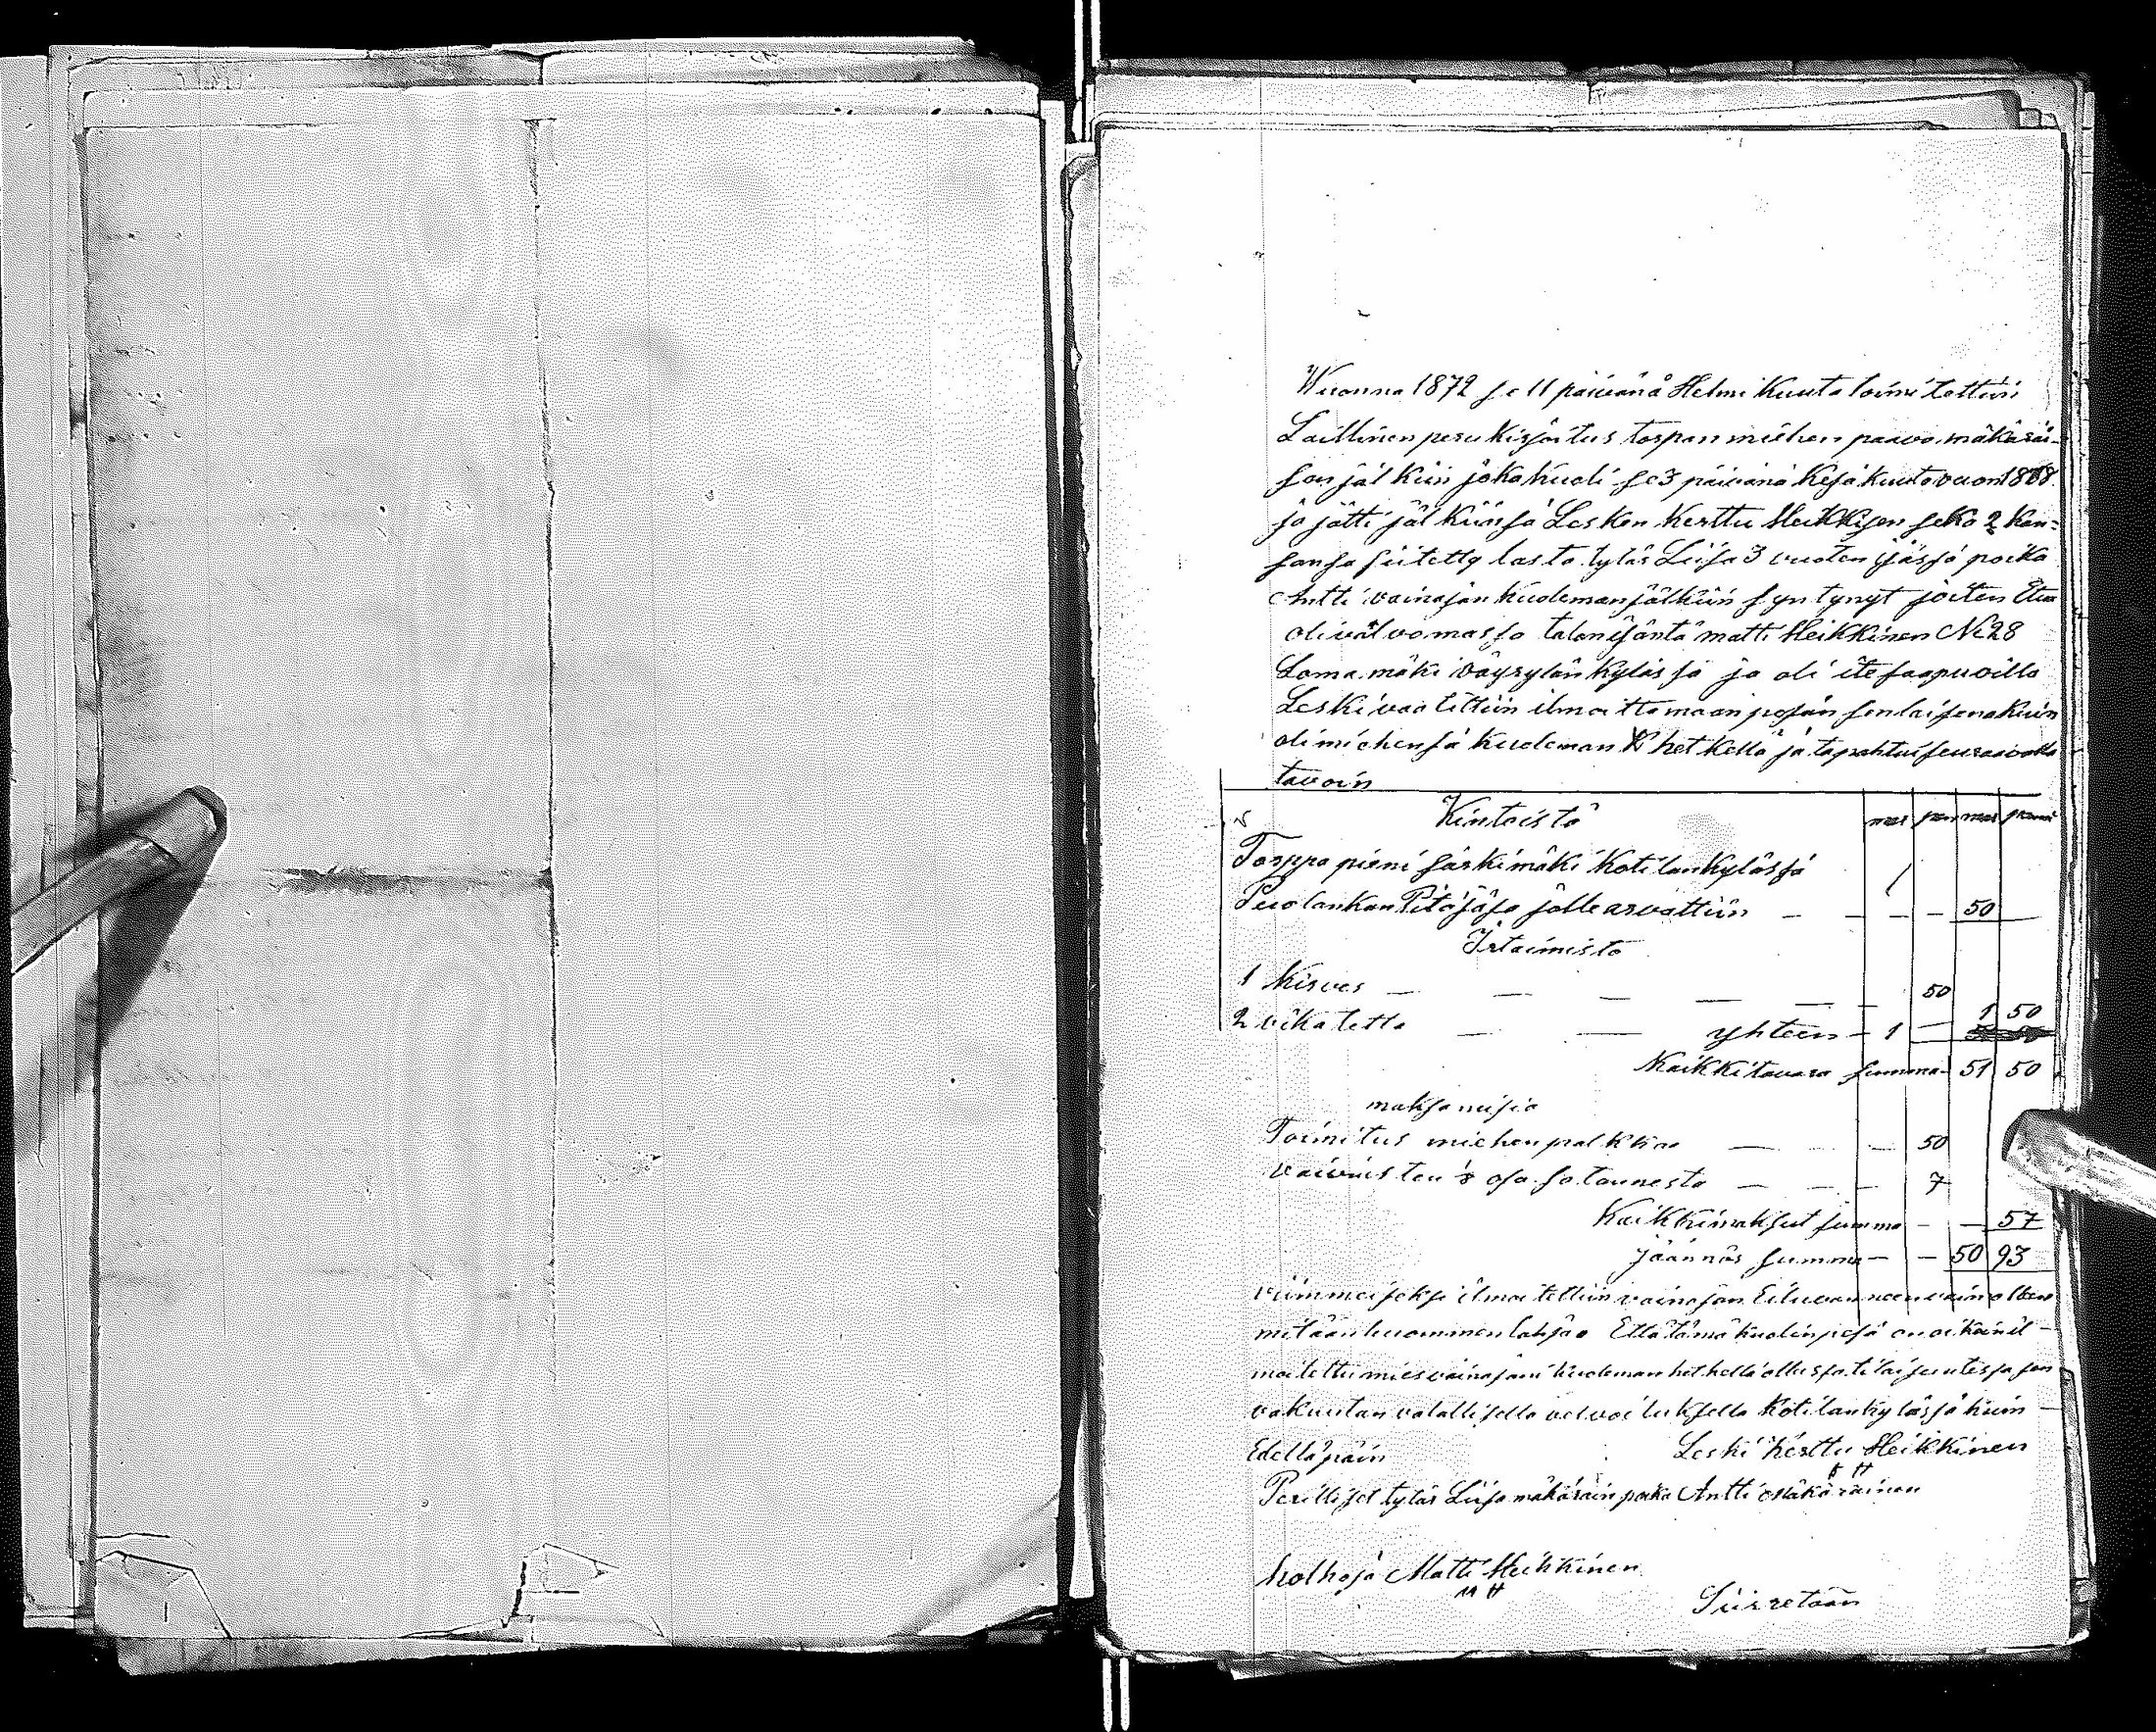 Wuonna 1872 se 11 päivänä Helmi Kuuta toimitettiin
Laillinen peru kirjoitus torpan miehen paavo mäkäräi-
sen jäl kiin joka kuoli se 3 päivänä Kesä kuuta vuon 1868
ja jätti jäl kiinsä Lesken Kerttu Heikkisen sekä 2 Kan-
sansa siitetty lasta tytär Liisa 3 vuoten ijässä poika
Antti vainajan kuoleman jälkiin syn tynyt joiten Etua
oli valvomassa talon isäntä matti Heikkinen No 28
Loma mäki väyrylän kylässä ja oli ite saapuvilla
Leski vaatittiin ilmoittamaan pesän senlaisena kuin
oli miehensä kuoleman hetkellä ja tapahtui seuraavalla
tavoin
Kinteistö
mar pen mar penni
Torppa pieni särkimäki Kotilankylässä
Puolankan Pitäjäsä jolle arvattiin — — — — 50
Irtaimisto
1 Kirves — — — — — — 50
2 vikatetta — — yhteen — 1 — 1 50
Kaikki tavara summa 51 50
maksamisia
Toimitus miehen palkkaa — — 50
vaivaisten 1/8 osa sa taunesta — — — 7
Kaikki maksut summa — — 57
Jäännös summa — — 50 93
viimmeiseksi ilmoitettiin vainajan Ei luvanneen vain olleen
mitään huommen lahjaa Että tämä kuolinpesä on oikein il-
moitettu miesvainajani kuoleman hetkellä ollessa tilaisuutessa sen
vakuutan valallisella velvoituksella Kotilankylässä kuin
Edellä päin Leski Kerttu Heikkinen
K H
Perilliset tytär Liisa mäkäräin poika Antti mäkäräinen
holhoja Matti Heikkinen
M H
Siirretään